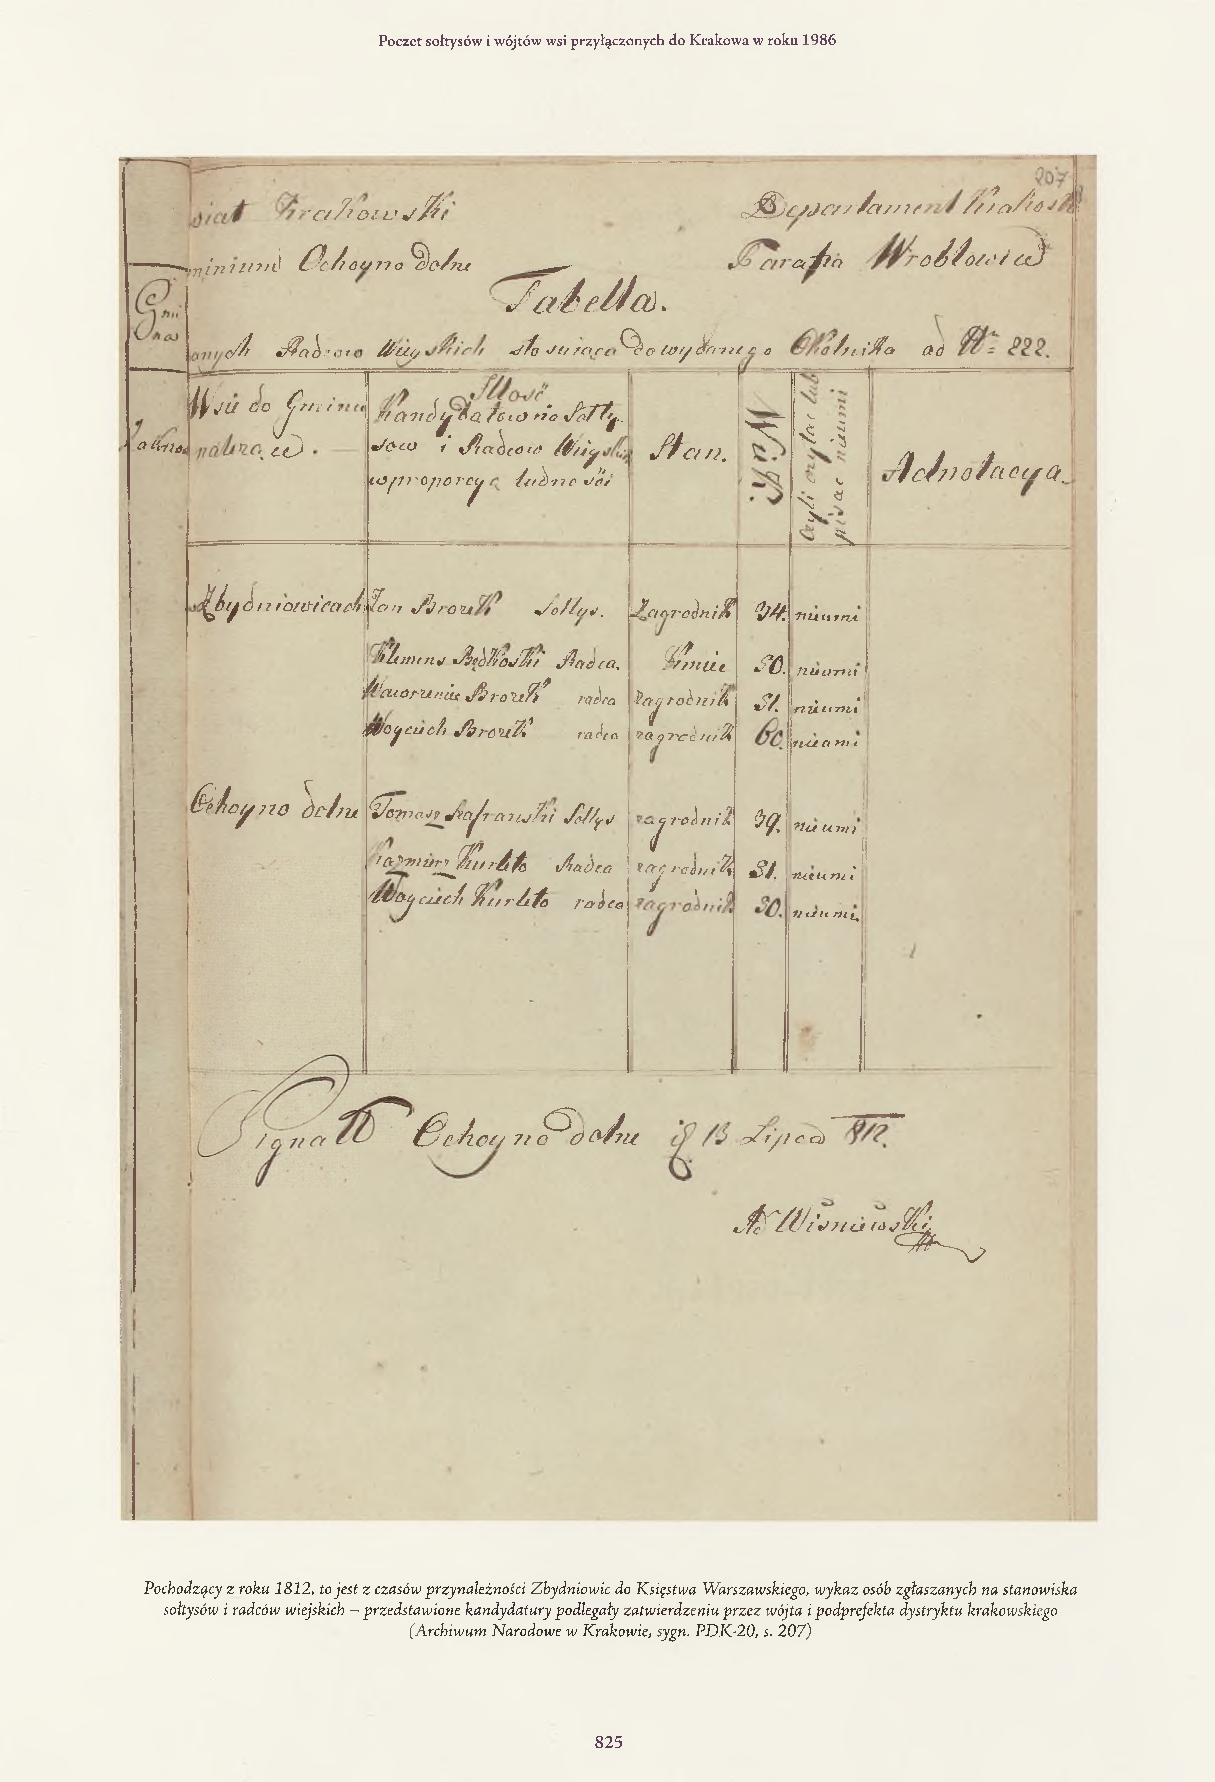 Poczet sołtysów i wójtów wsi przyłączonych do Krakowa w roku 1986
207
wiat Krakowski Departament Krakosk
minium Ochoyno Dolne Parafia Wroblowice
Tabella.
anych Radcow Wieyskich stosuiąca do wydanego Okolnika ad Nr 222.
Wsie do Gminu należące.
Ilość Kandydatow na Sołtysow i Radcow Wieyskich w proporcyą ludności
Stan.
Wiek
Czyli czytać lub pisać nieumi
Adnotacya
Zbydniowicach Jan Brozek Sołtys. Zagrodnik 34. nieumi
Klemens Będkoski Radca. Kmieć 50. nieumi
Wawrzeniec Brozek radca zagrodnik 51. nieumi
Woyciech Brozek radca zagrodnik 60. nieumi
Ochoyno dolne Tomasz Szafrański Sołtys zagrodnik 39. nieumi
Kazmierz Kurleto Radca zagrodnik 51. nieumi
Woyciech Kurleto radca zagrodnik 50. nieumi.
Signatt Ochoyno dolne 13 Lipca 812.
Wisniewski
Pochodzący z roku 1812, to jest z czasów przynależności Zbydniowic do Księstwa Warszawskiego, wykaz osób zgłaszanych na stanowiska
sołtysów i radców wiejskich – przedstawione kandydatury podlegały zatwierdzeniu przez wójta i podprefekta dystryktu krakowskiego
(Archiwum Narodowe w Krakowie, sygn. PDK-20, s. 207)
825